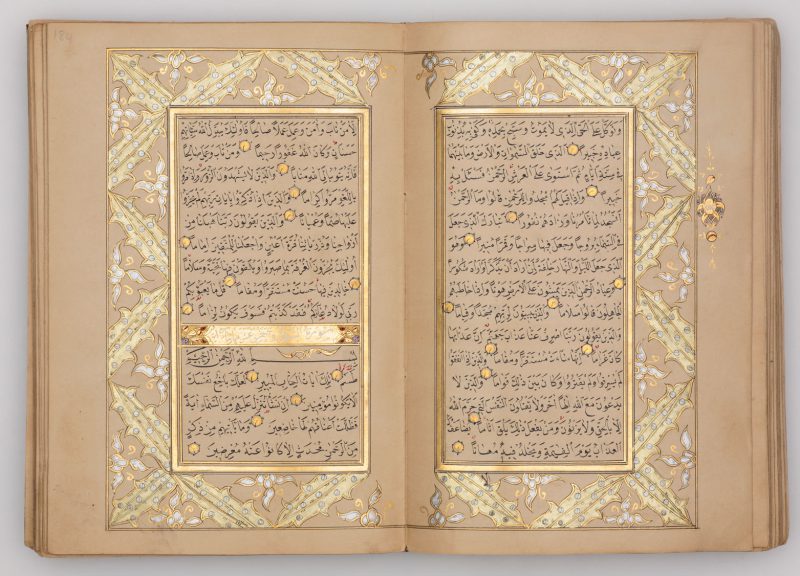 وتوكل على الحي الذي لا يموت وسبح بحمده وكفى به بذنوب
عباده خبيرا الذي خلق السموات والارض وما بينهما
في ستة ايام ثم استوى على العرش الرحمن فسئل به
خبيرا واذا قيل لهم اسجدوا للرحمن قالوا وما الرحمن
انسجد لما تأمرنا وزادهم نفورا تبارك الذي جعل
في السماء بروجا وجعل فيها سراجا وقمرا منيرا وهو
الذي جعل الليل والنهار خلفة لمن اراد ان يذكر او اراد شكورا
وعباد الرحمن الذين يمشون على الارض هونا واذا خاطبهم
الجاهلون قالوا سلاما والذين يبيتون لربهم سجدا وقياما
والذين يقولون ربنا اصرف عنا عذاب جهنم ان عذابها
كان غراما انها ساءت مستقرا ومقاما والذين اذا انفقوا
لم يسرفوا ولم يقتروا وكان بين ذلك قواما والذين لا
يدعون مع الله الها اخر ولا يقتلون النفس التي حرم الله
الا بالحق ولا يزنون ومن يفعل ذلك يلق اثاما يضاعف له
العذاب يوم القيمة ويخلد فيه مهانا
184
الا من تاب وامن وعمل عملا صالحا فاولئك يبدل الله سيئاتهم
حسنات وكان الله غفورا رحيما ومن تاب وعمل صالحا
فانه يتوب الى الله متابا والذين لا يشهدون الزور واذا مروا
باللغو مروا كراما والذين اذا ذكروا بايات ربهم لم يخروا
عليها صما وعميانا والذين يقولون ربنا هب لنا من
ازواجنا وذرياتنا قرة اعين واجعلنا للمتقين اماما
اولئك يجزون الغرفة بما صبروا ويلقون فيها تحية وسلاما
خالدين فيها حسنت مستقرا ومقاما قل ما يعبؤ بكم
ربي لولا دعاؤكم فقد كذبتم فسوف يكون لزاما
بسم الله الرحمن الرحيم
طسم تلك ايات الكتاب المبين لعلك باخع نفسك
الا يكونوا مؤمنين ان نشأ ننزل عليهم من السماء اية
فظلت اعناقهم لها خاضعين وما يأتيهم من ذكر
من الرحمن محدث الا كانوا عنه معرضين